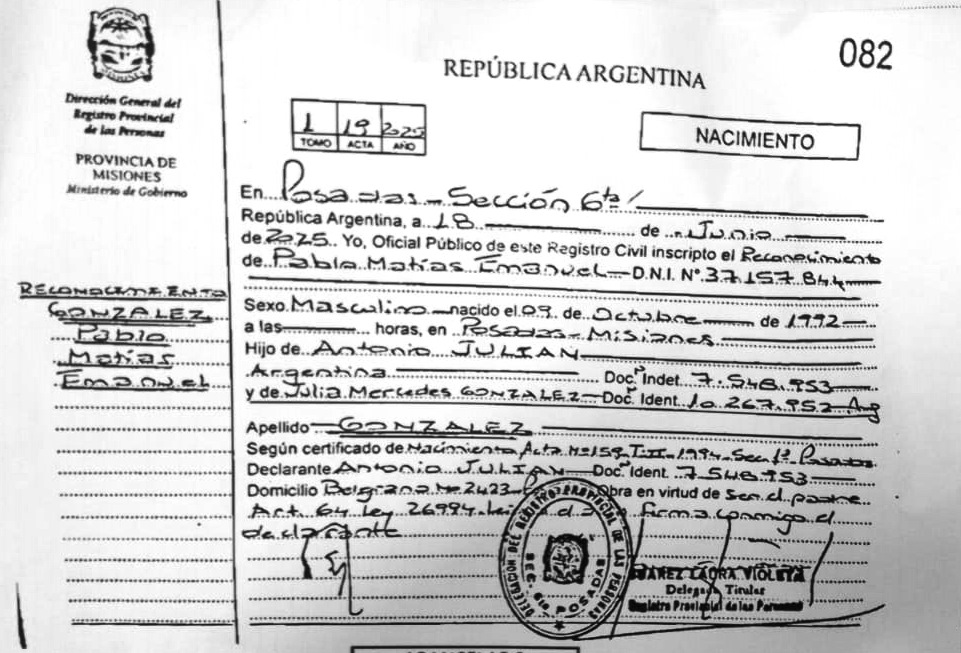 082
REPÚBLICA ARGENTINA
Dirección General del
Registro Provincial
de las Personas
PROVINCIA DE
MISIONES
Ministerio de Gobierno
1 19 2025
TOMO ACTA AÑO
NACIMIENTO
En Posadas - Sección 6ta
República Argentina, a 18 de Junio
de 2025. Yo, Oficial Público de este Registro Civil inscripto el Reconocimiento
de Pablo Matías Emanuel D.N.I. N° 37.157.844
RECONOCIMIENTO
GONZALEZ
Pablo
Matías
Emanuel
Sexo Masculino nacido el 09 de Octubre de 1992
a las horas, en Posadas - Misiones
Hijo de Antonio JULIAN
Argentina Doc. Indet. 7.548.953
y de Julia Mercedes GONZALEZ Doc. Ident. 10.267.952 Arg
Apellido GONZALEZ
Según certificado de Nacimiento Acta N° 159 T II - 1994 - Sec 1° Posadas
Declarante Antonio JULIAN Doc. Ident. 7.548.953
Domicilio Belgrano N° 2423 Obra en virtud de ser el padre
Art. 64 Ley 26994 firma conmigo el
declarante
DELEGACION DEL REGISTRO PROVINCIAL DE LAS PERSONAS
SEC. 6ta POSADAS
SUAREZ LAURA VIOLETA
Delegada Titular
Registro Provincial de las Personas